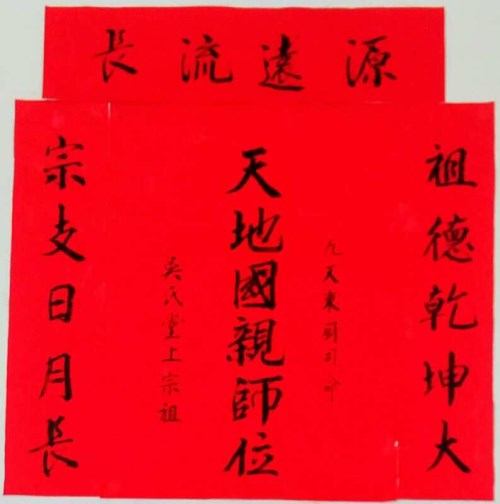 源遠流長
祖德乾坤大
九天東厨司命
天地國親師位
吳氏堂上宗祖
宗支日月長